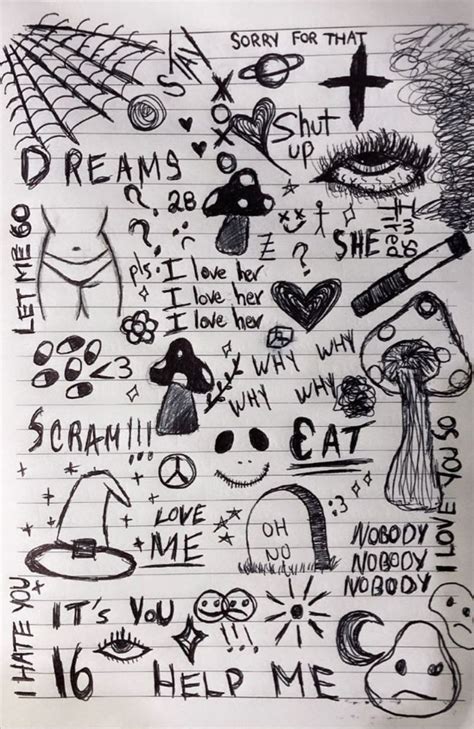 SORRY FOR THAT
STAY
XOXO
Shut
up
DREAMS
?
28
?
?
Z
?
SHE
I'm so
tired
LET ME GO
pls.
I love her
I love her
I love her
<3
WHY WHY
WHY WHY
SCRAM!!!
EAT
I LOVE YOU SO
:3
LOVE
ME
OH
NO
NOBODY
NOBODY
NOBODY
I HATE YOU
IT'S YOU
!!!
16
HELP ME